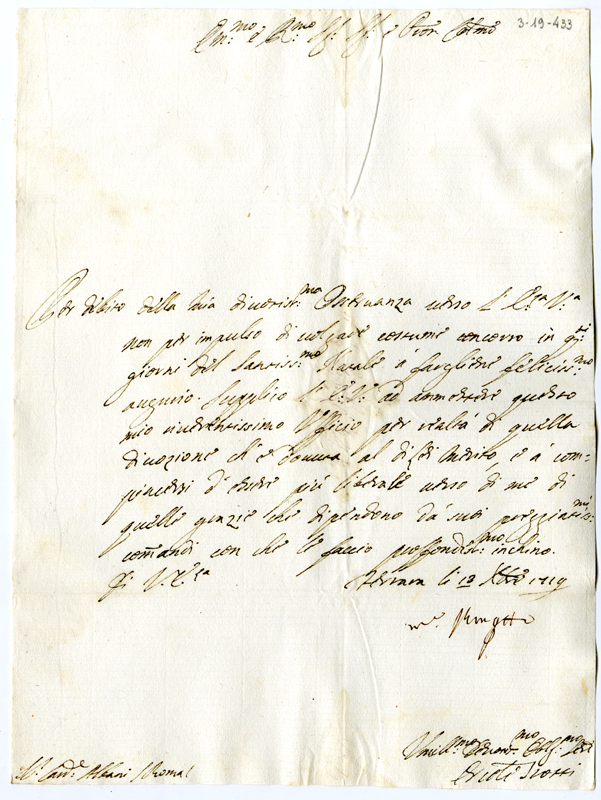 3-19-433
Em.mo e R.mo Sig.r Sig.r e Pron Colmo
Per debito della mia divotis.ma Osservanza verso l'E.za V.a
non per impulso di volgare costume concorro in q.ti
giorni del Santiss.mo Natale à fargliene feliciss.mo
augurio. Supplico l'E. V. ad ammettere questo
mio riverentissimo Ufficio per realtà di quella
divozione ch'è dovuta al di Lei merito, e à com=
piacersi d'essere più liberale verso di me di
quelle grazie che dipendono da' suoi preggiatis.mi
comandi con che le faccio profondis.mo inchino.
Di V. E.za
Ferrara li 12 Xbre 1719
Umil.mo Devot.mo Oblig.mo
Sig.r Card.e Albani Roma